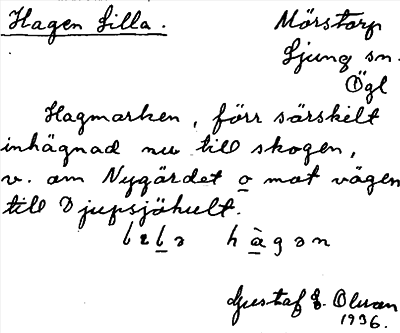 Hagen Lilla.
Mörstorp
Ljung sn.
Ögl
Hagmarken, förr särskilt
inhägnad nu till skogen,
v. om Nygärdet o mot vägen
till Djupsjöhult.
hagən
Gustaf
1936.